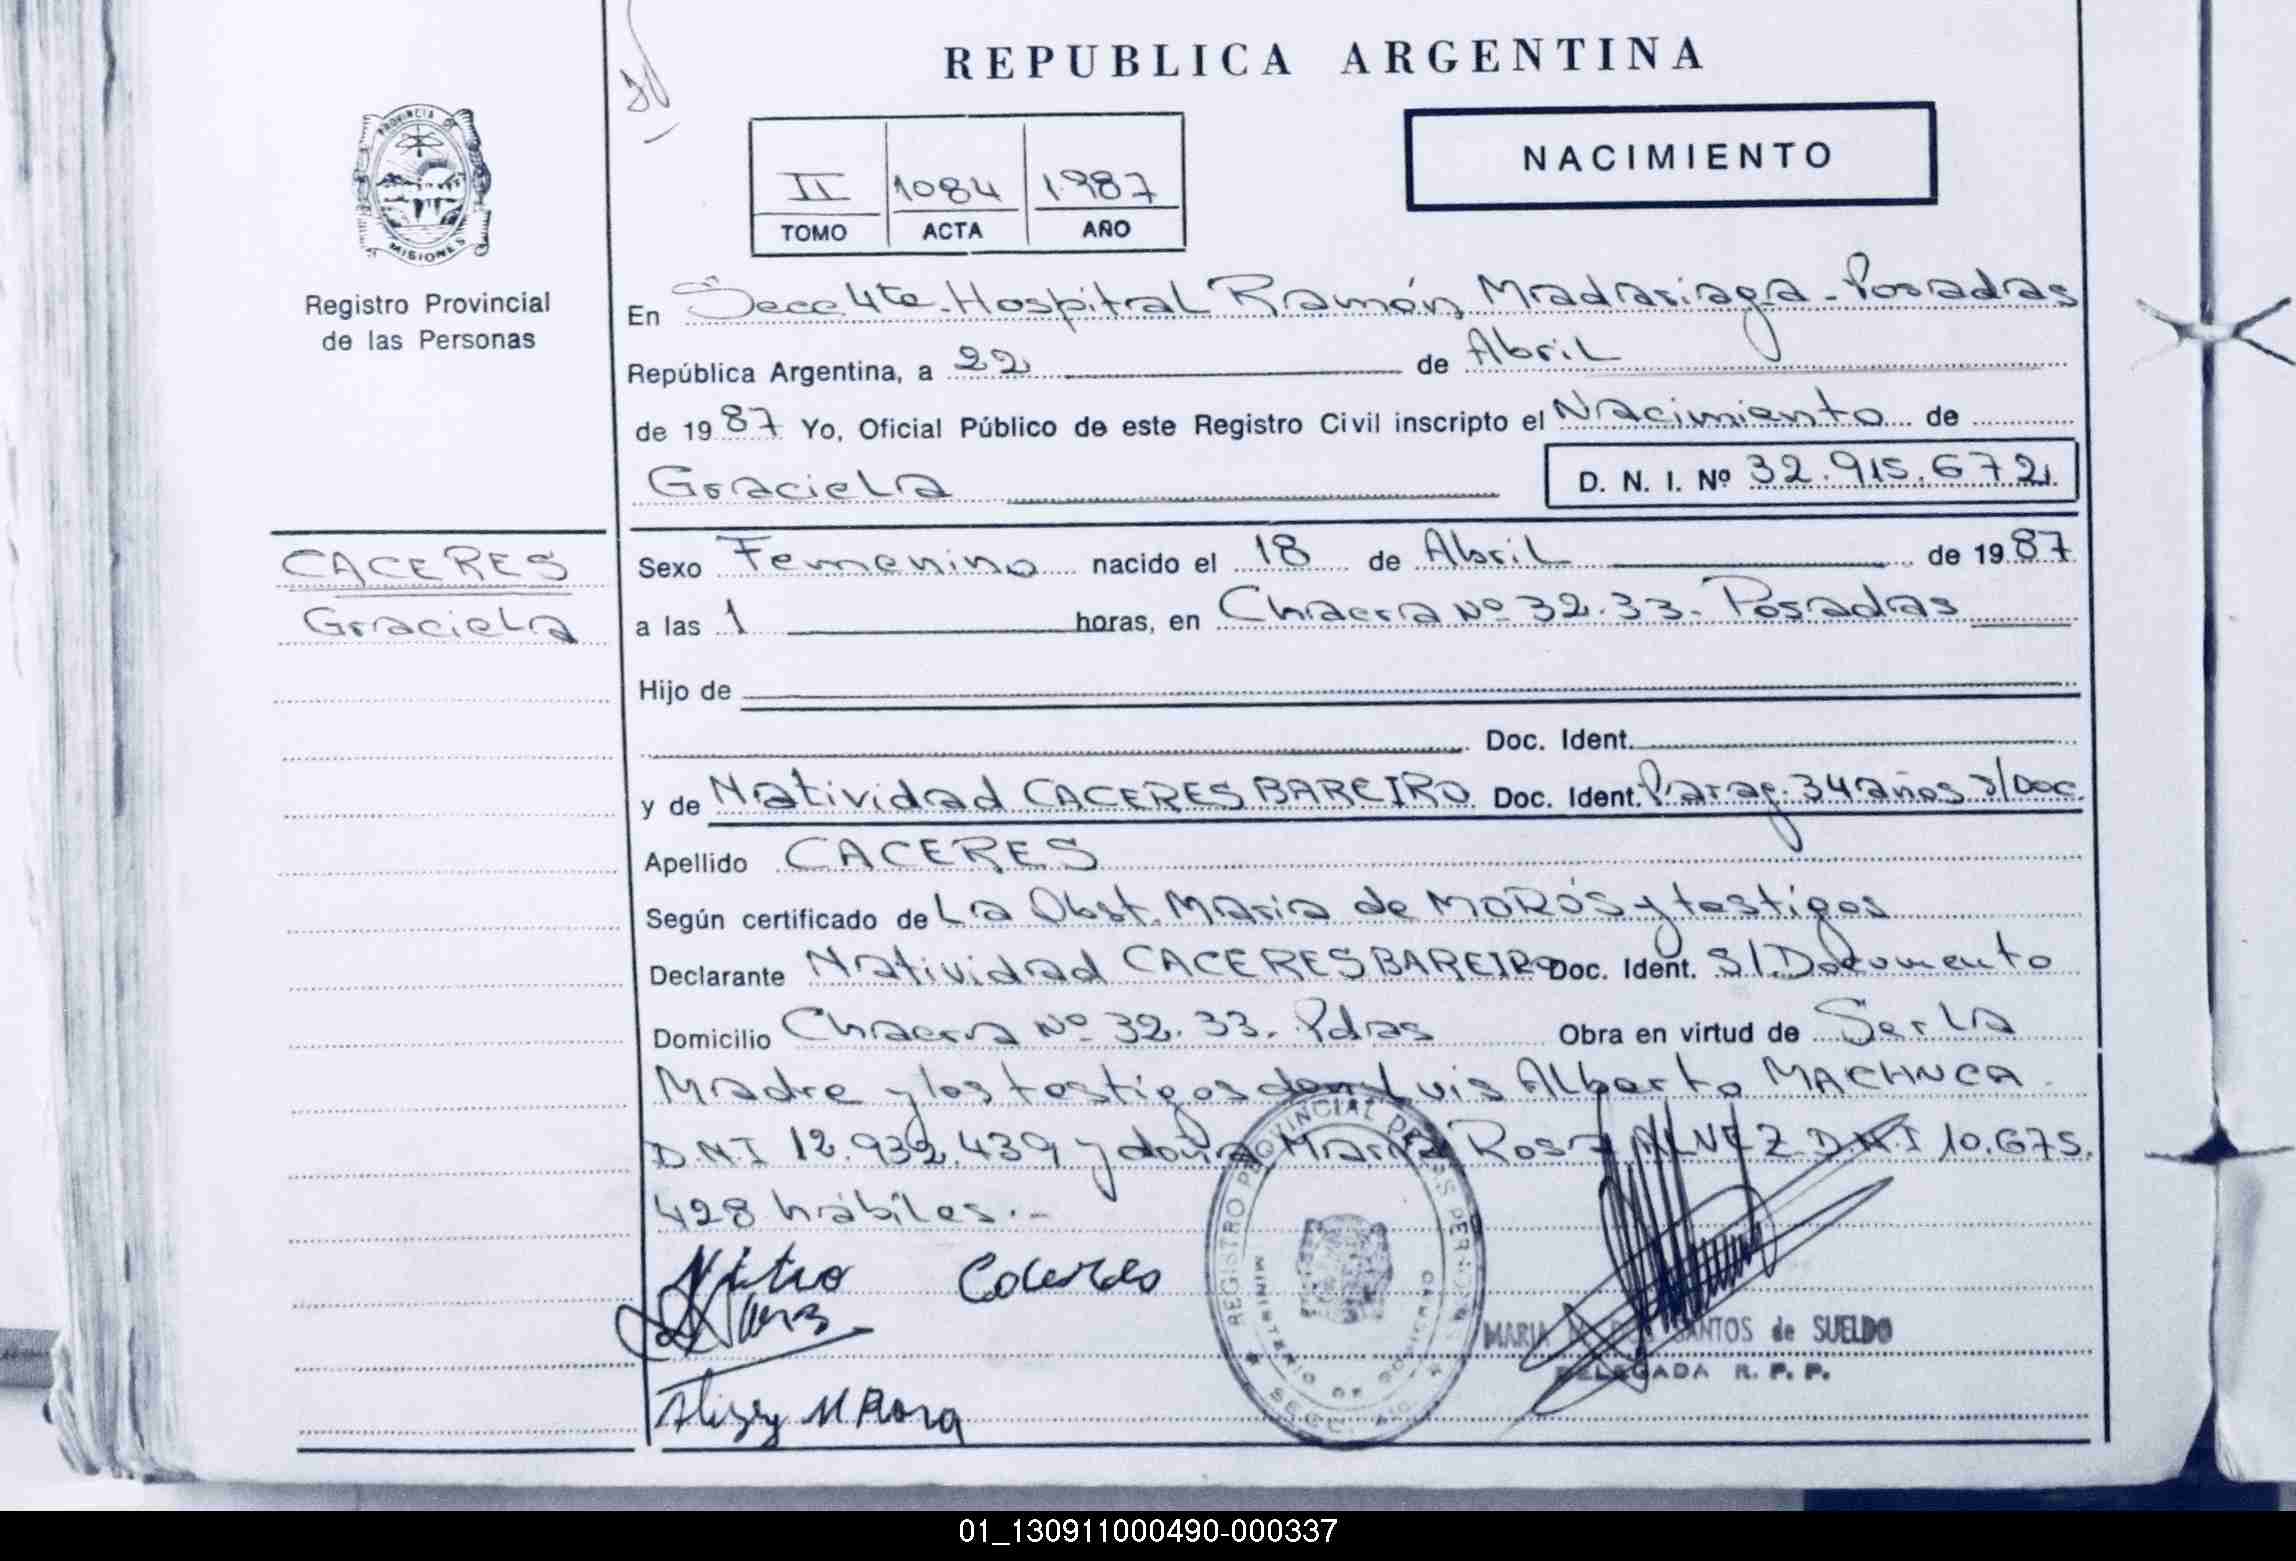 REPUBLICA ARGENTINA
PROVINCIA DE MISIONES
Registro Provincial
de las Personas
II 1084 1987
TOMO ACTA AÑO
NACIMIENTO
En Secc 4ta. Hospital Ramón Madariaga - Posadas
República Argentina, a 22 de Abril
de 1987 Yo, Oficial Público de este Registro Civil inscripto el Nacimiento de
Graciela D. N. I. Nº 32.915.672
CACERES
Graciela
Sexo Femenino nacido el 18 de Abril de 1987
a las 1 horas, en Chacra Nº 32.33. Posadas
Hijo de
Doc. Ident.
y de Natividad CACERES BAREIRO Doc. Ident. Parag. 34 años s/Doc.
Apellido CACERES
Según certificado de La Obst. Maria de MOROS y testigos
Declarante Natividad CACERES BAREIRO Doc. Ident. S/.Documento
Domicilio Chacra Nº 32.33. Pdas Obra en virtud de Ser La
Madre y los testigos don Luis Alberto MACHUCA
D.N.I 12.932.439 y doña Maria Rosa ALVEZ D.N.I 10.675.
428 hábiles.-
REGISTRO PROVINCIAL DE LAS PERSONAS
MINISTERIO DE GOBIERNO
MARIA SANTOS de SUELDO
DELEGADA R. P. P.
01_130911000490-000337